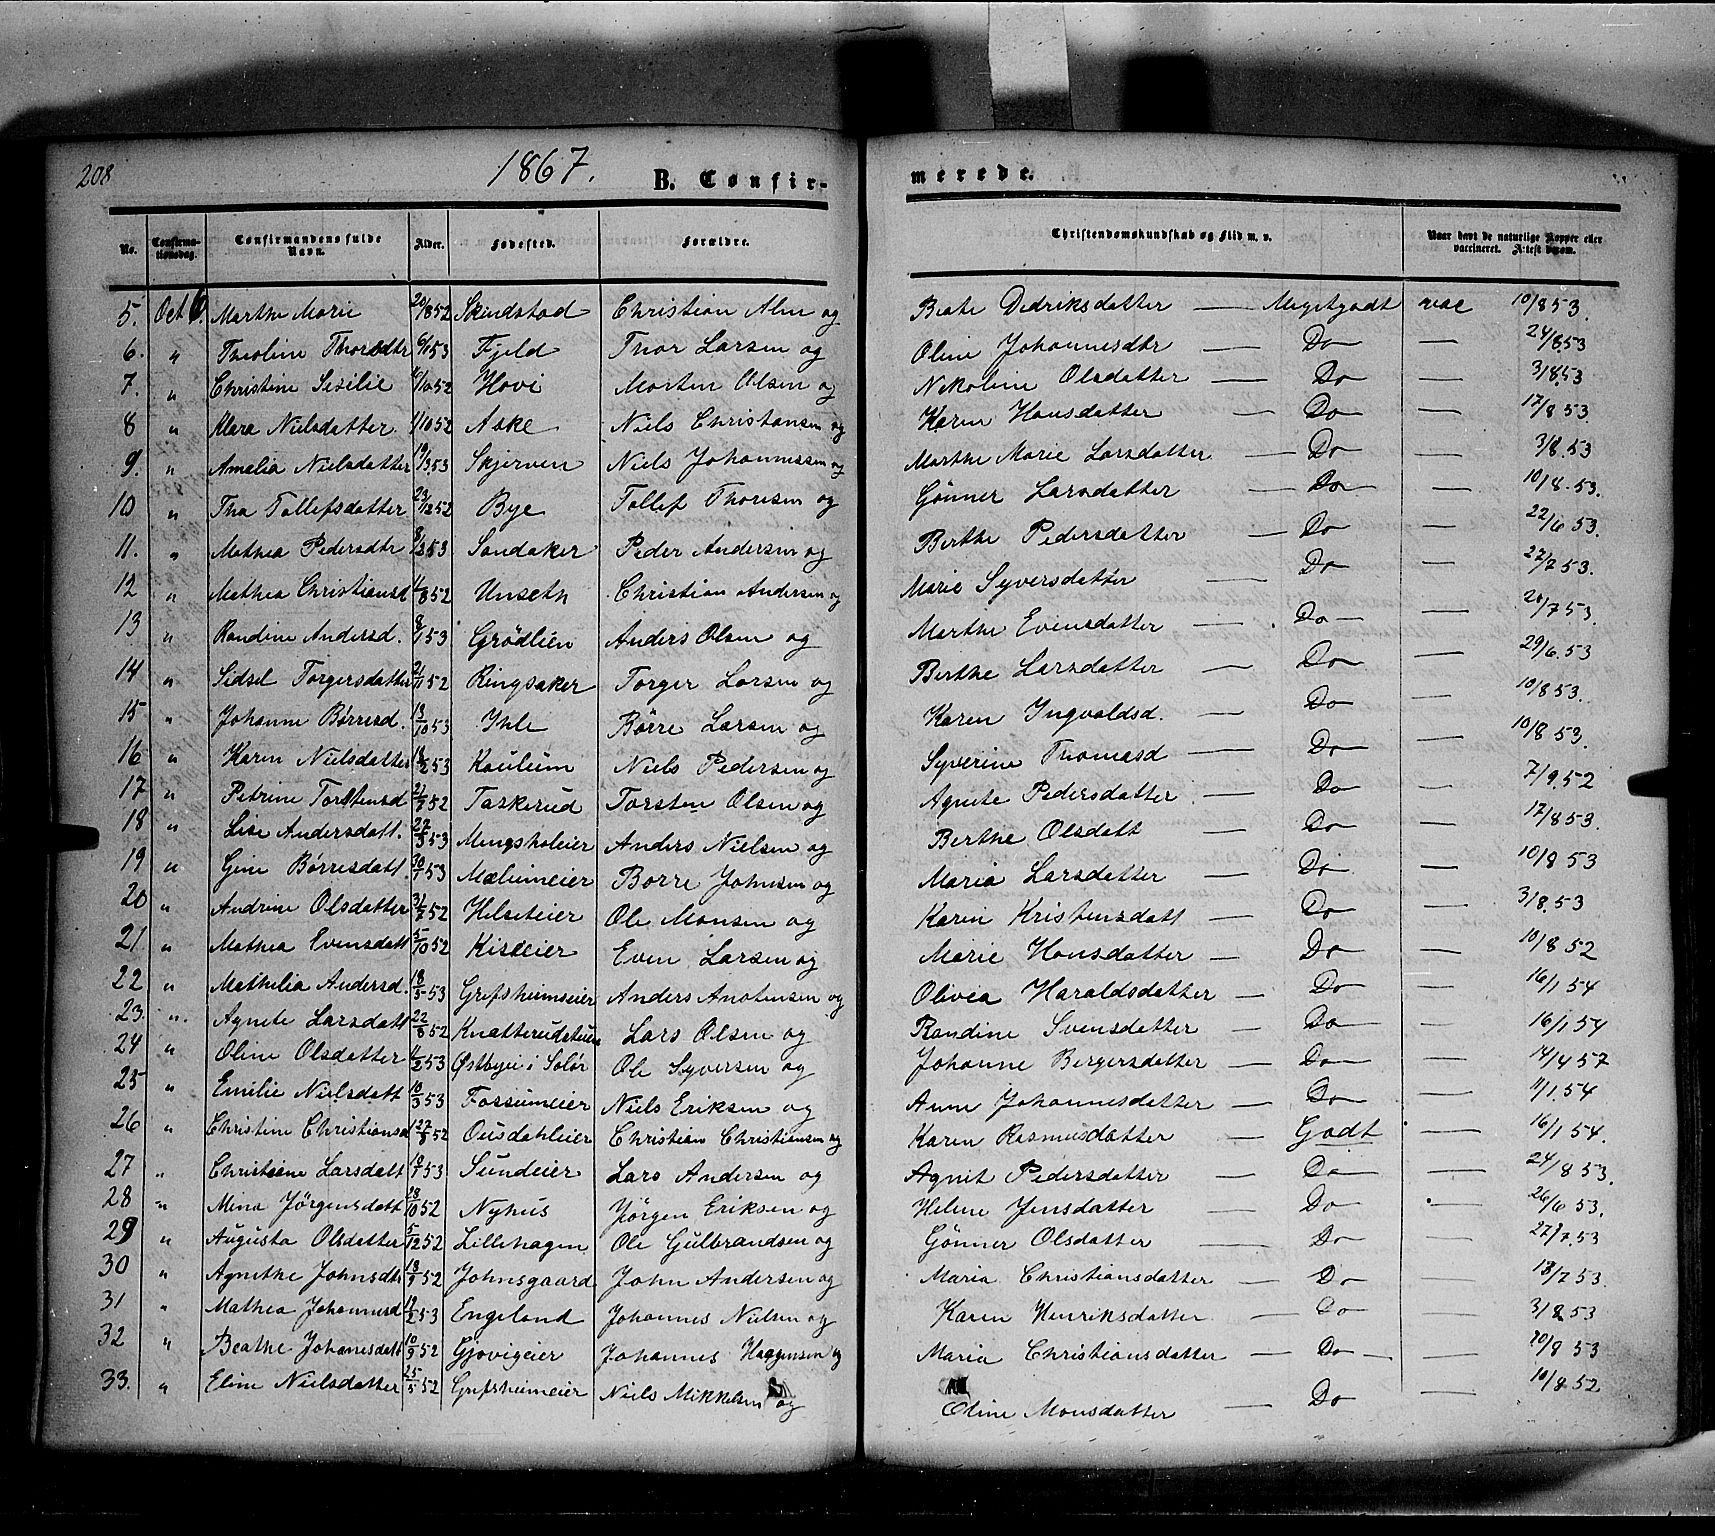 208 1867. B. Confir- merede.
No. Confirma-tionsdag. Confirmandens fulde Navn. Alder. Fødested. Forældre. Christendomskundskab og Flid m. v. Naar havt de naturlige Kopper eller vaccineret. Attest derom.
5. Oct 6. Marthe Marie 20/8 52 Skindstad Christian Alm og Beate Dedriksdatter — Megetgodt vac 10/8 53.
6. " Theoline Thorsdtr 6/1 53 Fjeld Thor Larsen og Oline Johannesdtr — Do — 24/8 53
7. " Christine Sesilie 10/10 52 Hovi Morten Olsen og Nikoline Olsdatter — Do — 3/8 53
8 " Mara Nielsdatter 1/10 52 Aske Niels Christansen og Karen Hansdatter — Do — 17/8 53.
9. " Amalia Nielsdatter 19/3 53 Skjerven Niels Johannessen og Marthe Marie Larsdatter — Do — 3/8 53
10 " Tha Tollefsdatter 23/12 52 Bye Tollef Thoresen og Gønner Larsdatter — Do — 10/8 53.
11. " Mathea Pedersdtr 8/3 53 Sandaker Peder Andersen og Berthe Pedersdatter — Do — 22/6 53.
12 " Mathea Christiansd 11/8 52 Unseth Christian Andersen og Marie Syversdatter — Do — 27/7 53.
13 " Randine Andersd. 8/1 53 Grødlien Anders Olsen og Marthe Evensdatter — Do — 20/7 53.
14 " Sidsel Torgersdatter 21/11 52 Ringsaker Torger Larsen og Berthe Larsdatter — Do — 29/6 53
15 " Johanne Børresd. 13/10 53 Ihle Børre Larsen og Karen Ingvaldsd. — Do — 10/8 53.
16 " Karen Nielsdatter 18/2 53 Kaulum Niels Pedersen og Syverine Thomasd — Do — 10/8 53.
17 " Petrine Torstensd 21/7 52 Taskerud Torsten Olsen og Agnete Pedersdatter — Do — 7/9 52
18 " Lise Andersdatt. 27/3 53 Mengsholeier Anders Nielsen og Berthe Olsdatt — Do — 17/8 53.
19 " Gine Børresdatt 30/1 53 Mælumeier Borre Johnsen og Maria Larsdatter — Do — 10/8 53
20 " Andrine Olsdatter 31/7 52 Helseteier Ole Monsen og Karen Kristensdatt — Do — 3/8 53
21. " Mathea Evensdatt 5/10 52 Kiseeier Even Larsen og Marie Hansdatter — Do — 10/8 52
22 " Mathilia Andersd. 18/5 53 Grefsheimseier Anders Anotensen og Olivea Haraldsdatter — Do — 16/1 54
23. " Agnete Larsdatt 22/8 52 Knatterudsteien Lars Olsen og Randine Svensdatter — Do — 16/1 54
24 " Oline Olsdatter 11/2 53 Østbyei i Solør Ole Syversen og Johanne Bergersdatter — Do — 14/4 57
25 " Emilie Nielsdatt 10/3 53 Fossumeier Niels Eriksen og Anne Johannesdatter — Do — 11/1 54
26 " Christine Christiansd 27/5 52 Ousdahleier Christian Christiansen og Karen Rasmusdatter — Godt — 16/1 54.
27 " Christiane Larsdatt 18/7 53 Sundeier Lars Andersen og Agnit Pedersdatter — Do — 24/8 53.
28 " Mina Jørgensdatt 28/10 52 Nyhus Jørgen Eriksen og Helene Jensdatter — Do — 26/6 53.
29 " Augusta Olsdatter 5/12 52 Lillehagen Ole Gulbrandsen og Gønner Olsdatter — Do — 27/7 53
30 " Agnethe Johnsdtr 18/9 52 Johnsgaard John Andersen og Maria Christiansdatter — Do — 13/7 53.
31 " Mathea Johannesd 12/2 53 Engeland Johannes Nielsen og Karen Henriksdatter — Do — 3/8 53
32 " Beathe Johanesdatt 10/9 52 Gjøvigeier Johannes Haagensen og Maria Christiansdatter — Do — 20/8 53
33. " Eline Nielsdatter 25/5 52 Grefsheimeier Niels Mikkelsen og Oline Monsdatter — Do — 10/8 52